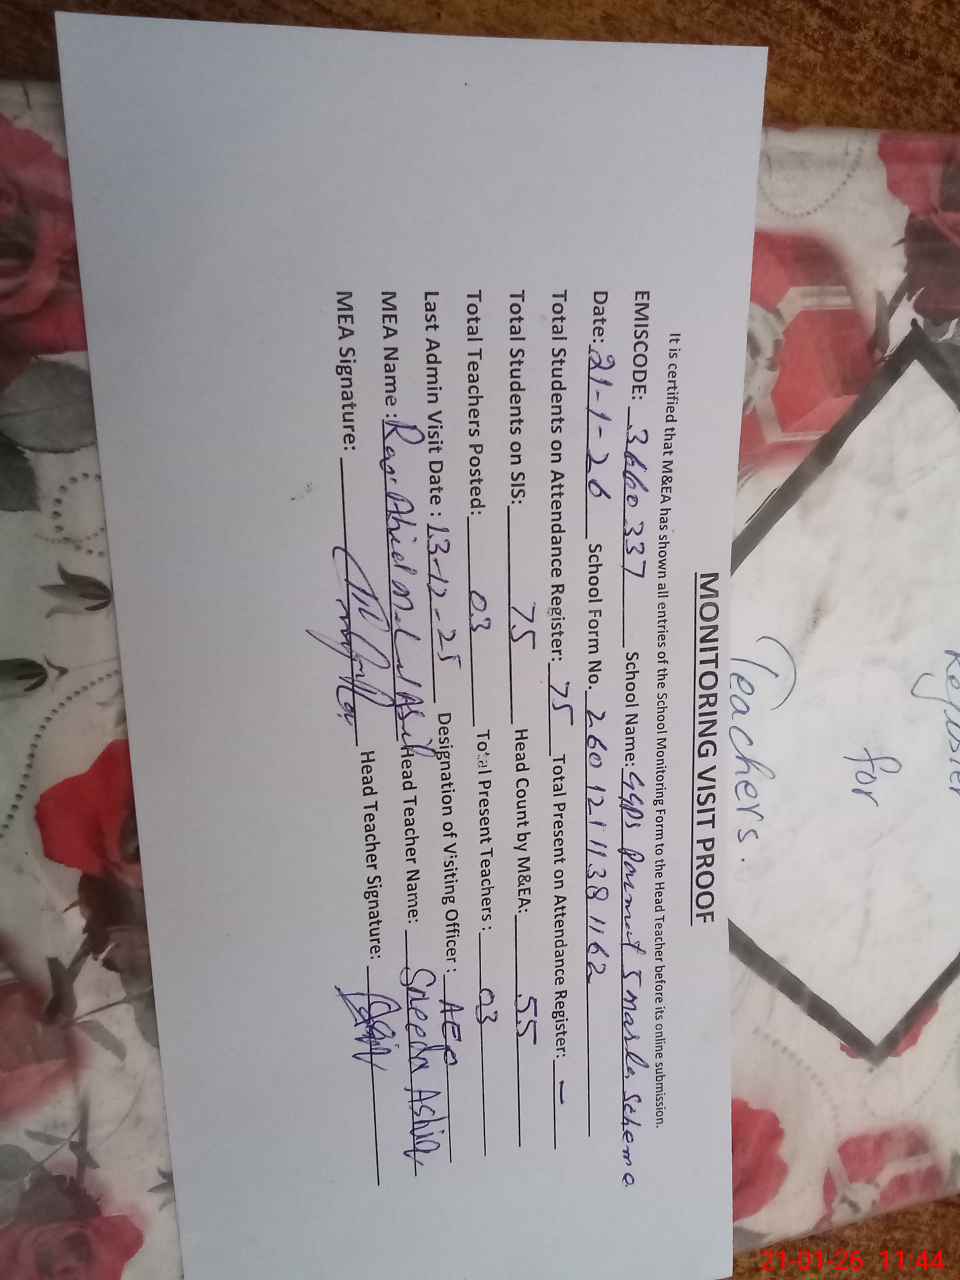 Register
for
Teachers.
MONITORING VISIT PROOF
It is certified that M&EA has shown all entries of the School Monitoring Form to the Head Teacher before its online submission.
EMISCODE: 3660337 School Name: GGPS 5 marla Scheme
Date: 21-1-26 School Form No. 26012111381162
Total Students on Attendance Register: 75 Total Present on Attendance Register: -
Total Students on SIS: 75 Head Count by M&EA: 55
Total Teachers Posted: 03 Total Present Teachers : 03
Last Admin Visit Date : 13-12-25 Designation of Visiting Officer : AEO
MEA Name : Head Teacher Name:
MEA Signature: Head Teacher Signature:
21-01-26 11:44